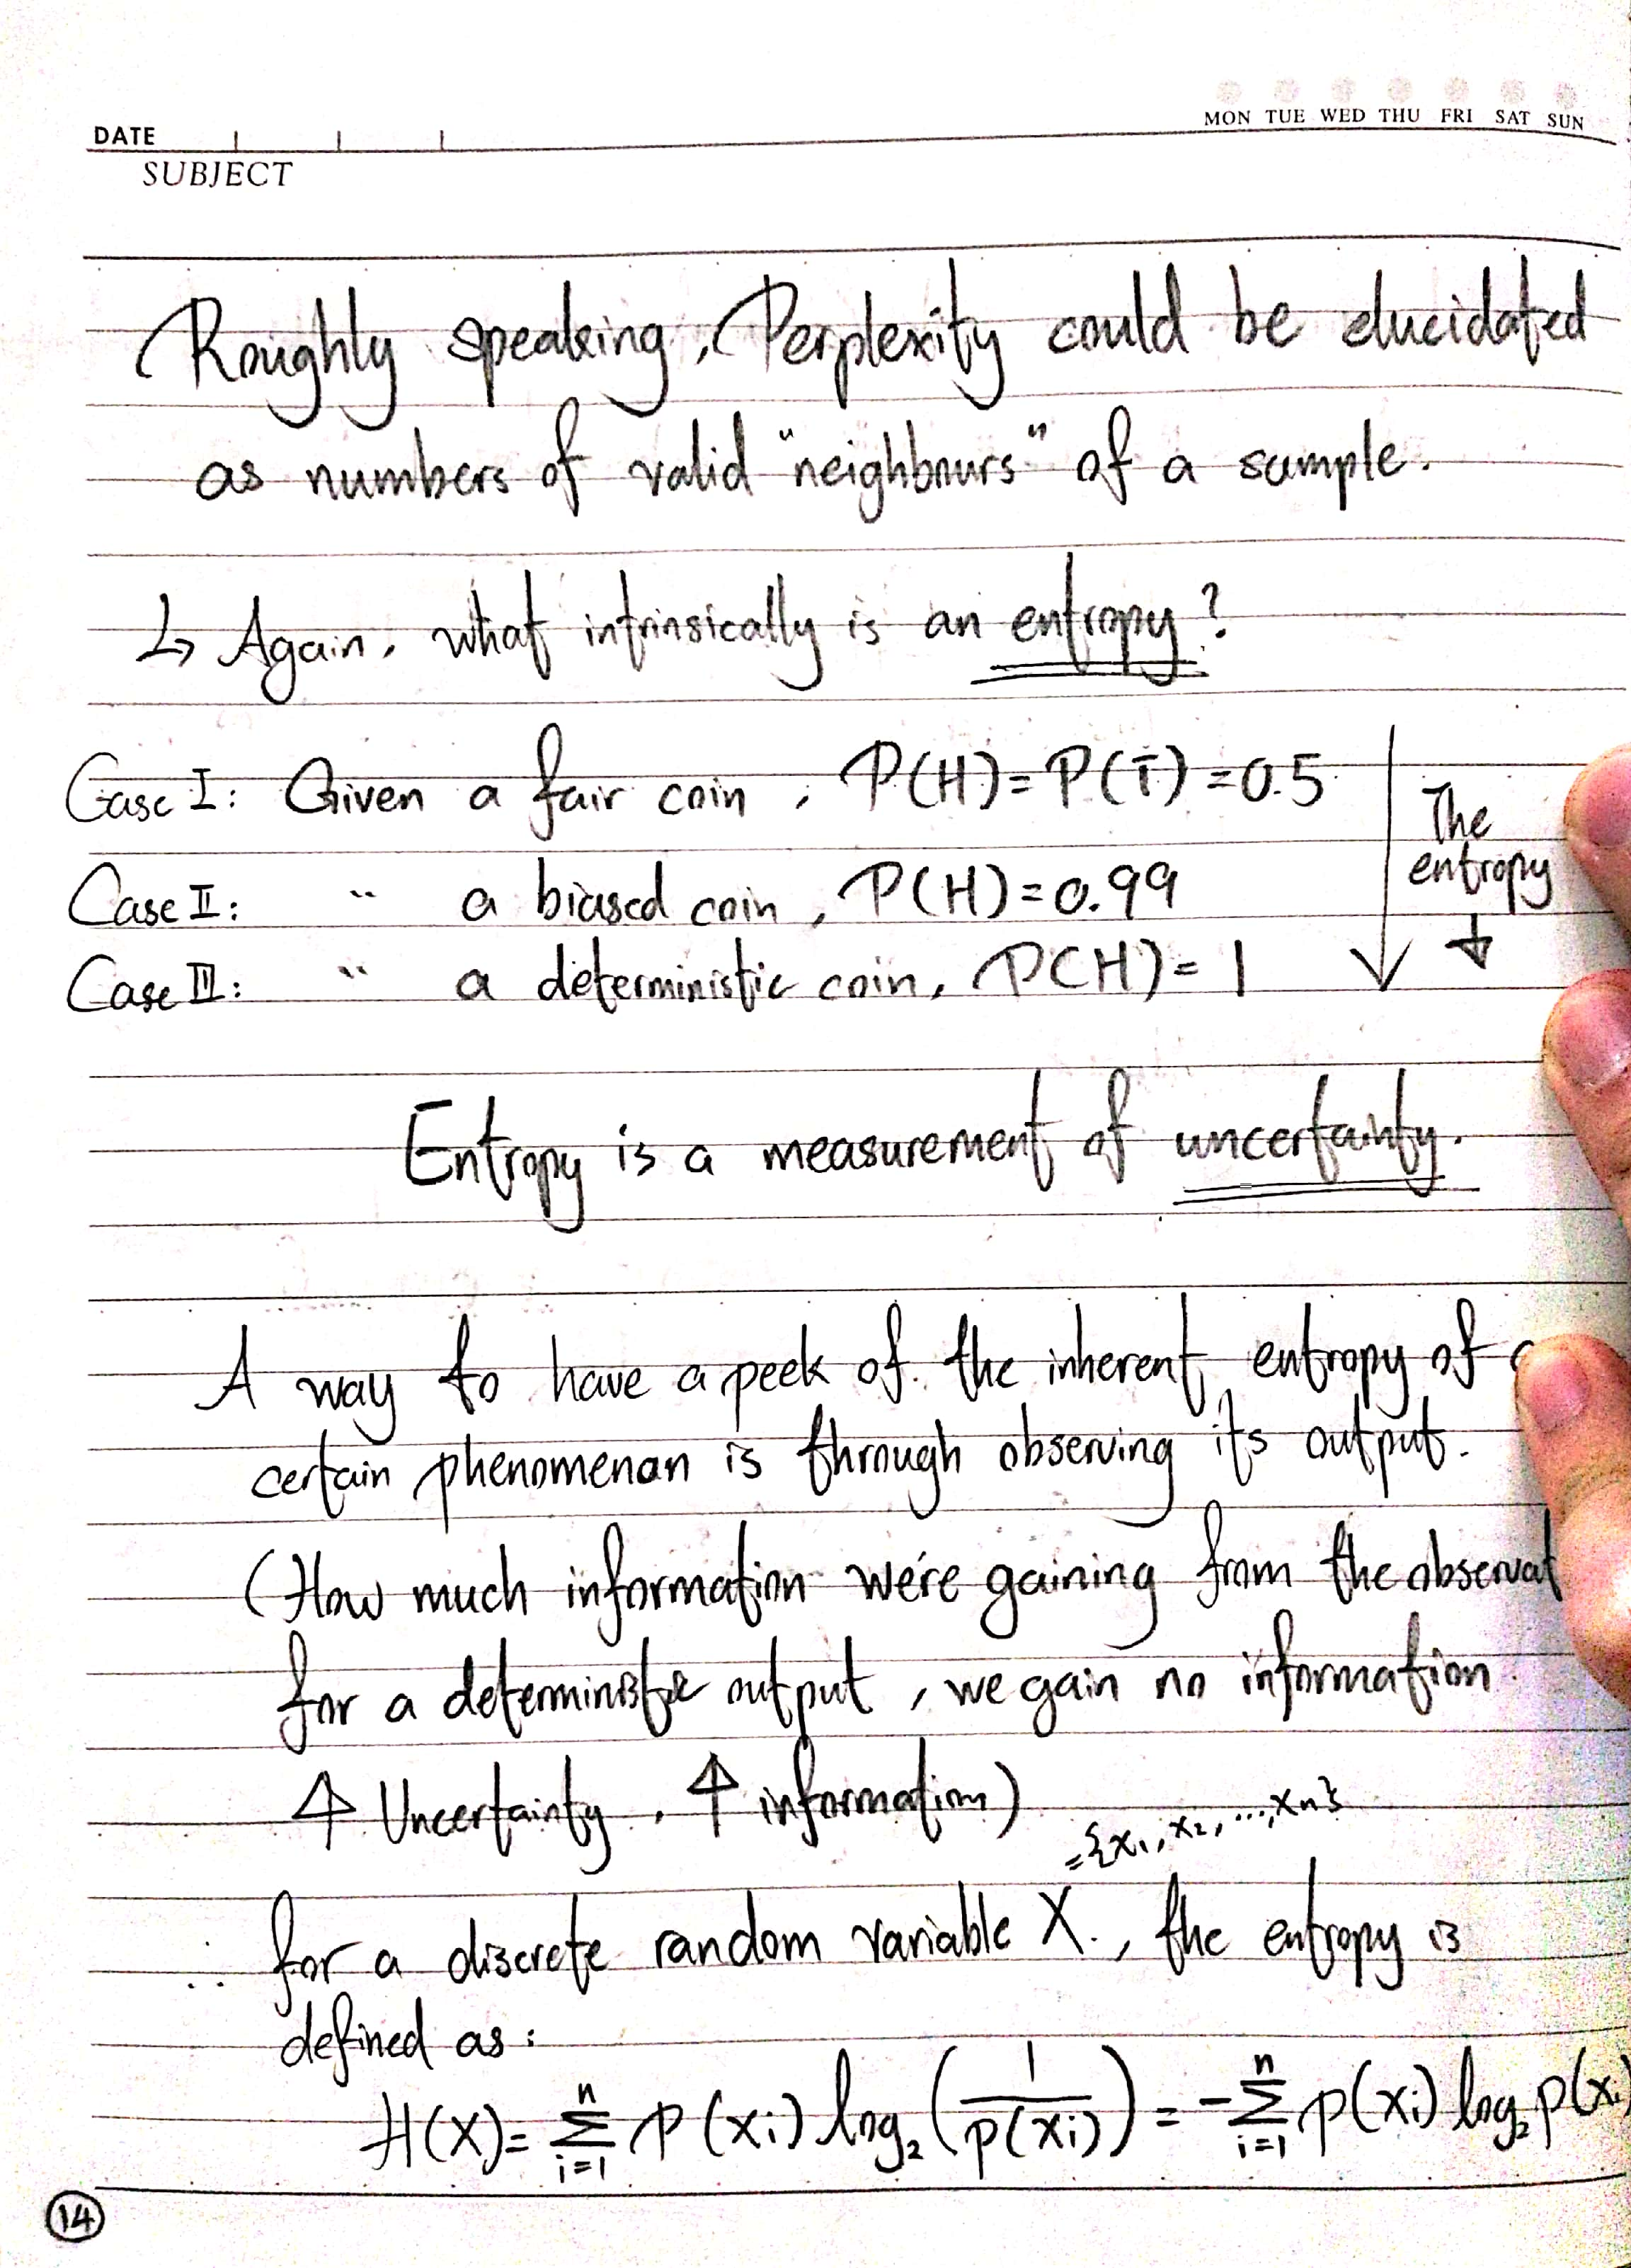 MON TUE WED THU FRI SAT SUN
DATE
SUBJECT
Roughly speaking, Perplexity could be elucidated
as numbers of valid "neighbours" of a sample.
↳ Again, what intrinsically is an entropy?
Case I: Given a fair coin, P(H)=P(T)=0.5
Case II: " a biased coin, P(H)=0.99
Case III: " a deterministic coin, P(H)=1
The
entropy
↓
Entropy is a measurement of uncertainty.
A way to have a peek of the inherent entropy of
certain phenomenon is through observing its output.
(How much information we're gaining from the observat
for a deterministic output, we gain no information.
↑ Uncertainty, ↑ information)
={x₁, x₂, ..., xn}
∴ for a discrete random variable X, the entropy is
defined as:
H(X)= Σⁿᵢ₌₁ p(xᵢ) log₂(1/p(xᵢ)) = -Σⁿᵢ₌₁ p(xᵢ) log₂ p(xᵢ)
14